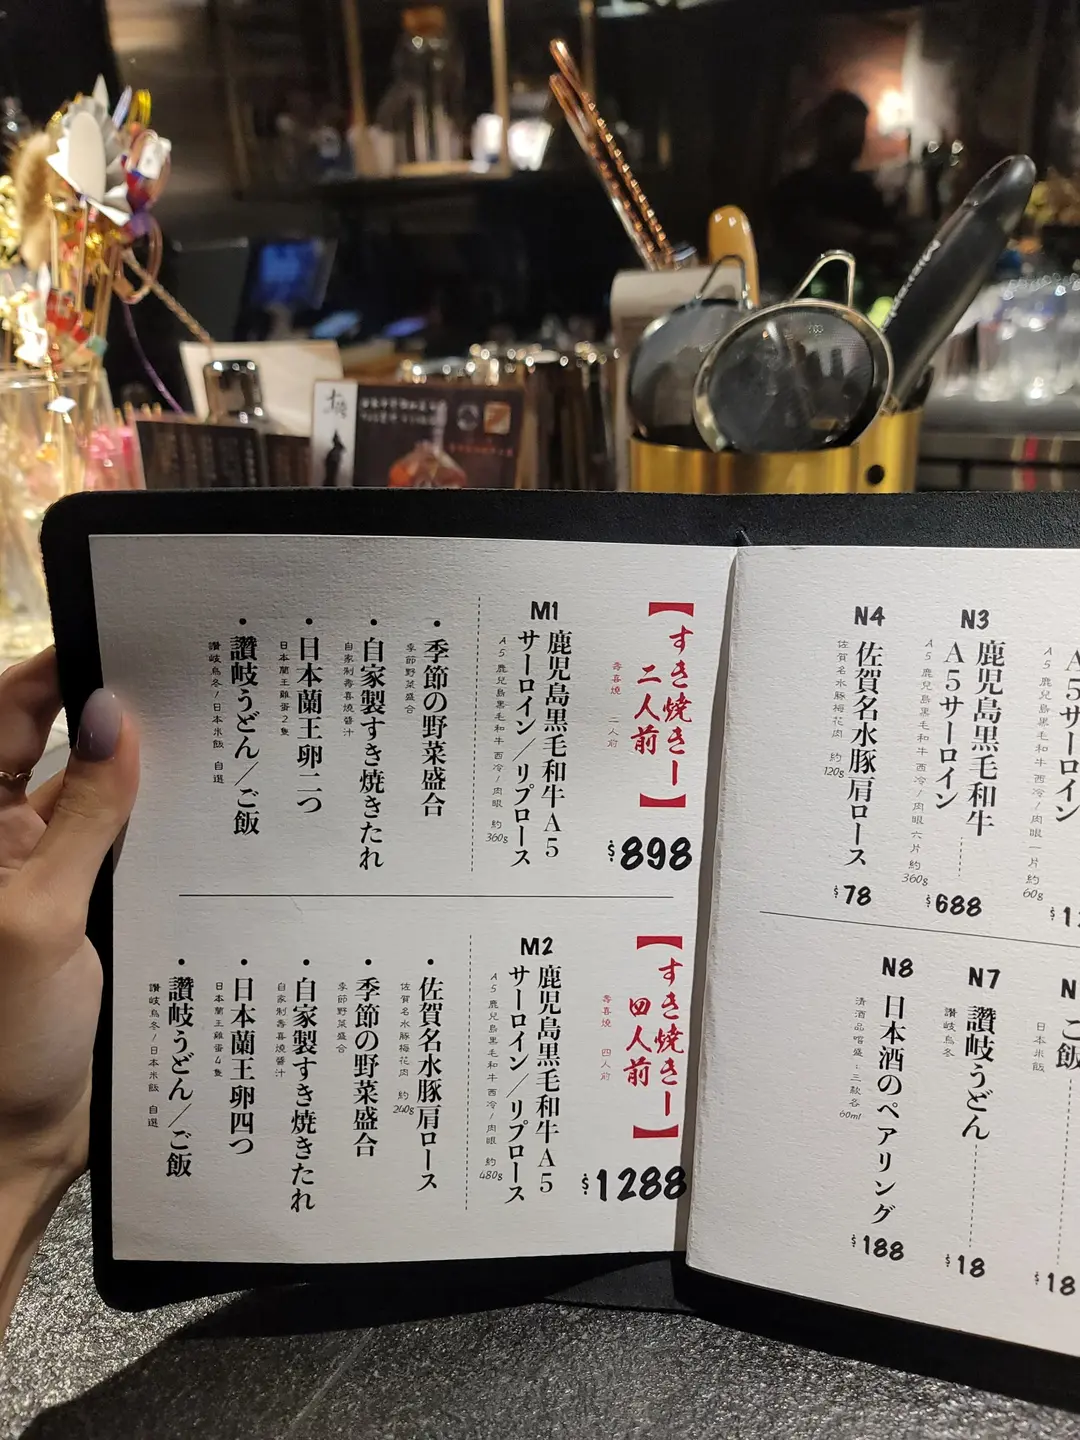 【すき焼き
二人前】
壽喜燒 二人前
$898
M1
鹿児島黒毛和牛A5
サーロイン／リブロース
A5鹿兒島黑毛和牛西冷/肉眼 約360g
・季節の野菜盛合
季節野菜盛合
・自家製すき焼きたれ
自家制壽喜燒醬汁
・日本蘭王卵二つ
日本蘭王雞蛋2隻
・讃岐うどん／ご飯
讚岐烏冬/日本米飯 自選
【すき焼き
四人前】
壽喜燒 四人前
$1288
M2
鹿児島黒毛和牛A5
サーロイン／リブロース
A5鹿兒島黑毛和牛西冷/肉眼 約480g
・佐賀名水豚肩ロース
佐賀名水豚梅花肉 約240g
・季節の野菜盛合
季節野菜盛合
・自家製すき焼きたれ
自家制壽喜燒醬汁
・日本蘭王卵四つ
日本蘭王雞蛋4隻
・讃岐うどん／ご飯
讚岐烏冬/日本米飯 自選
A5サーロイン
A5鹿兒島黑毛和牛西冷/肉眼一片 約60g
N3
鹿児島黒毛和牛
A5サーロイン
A5鹿兒島黑毛和牛西冷/肉眼六片 約360g
$688
N4
佐賀名水豚肩ロース
佐賀名水豚梅花肉 約120g
$78
ご飯
日本米飯
$18
N7
讃岐うどん
讚岐烏冬
$18
N8
日本酒のペアリング
清酒品嚐盛：三款各60ml
$188